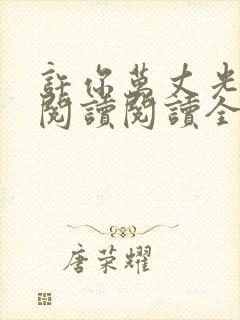 許你萬丈光
閱讀閱讀全
唐荣耀